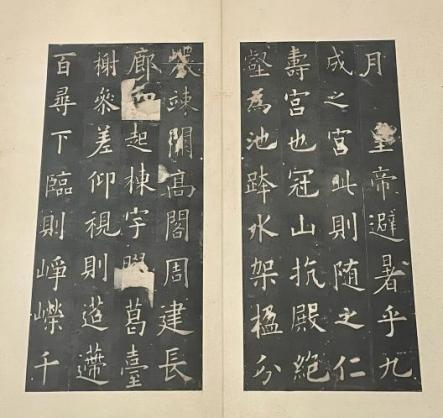 月 皇帝避暑乎九
成之宮此則隨之仁
壽宮也冠山抗殿絕
壑為池跨水架楹分
竦闕高閣周建長
廊四起棟宇葛臺
榭參差仰視則迢遰
百尋下臨則崢嶸千